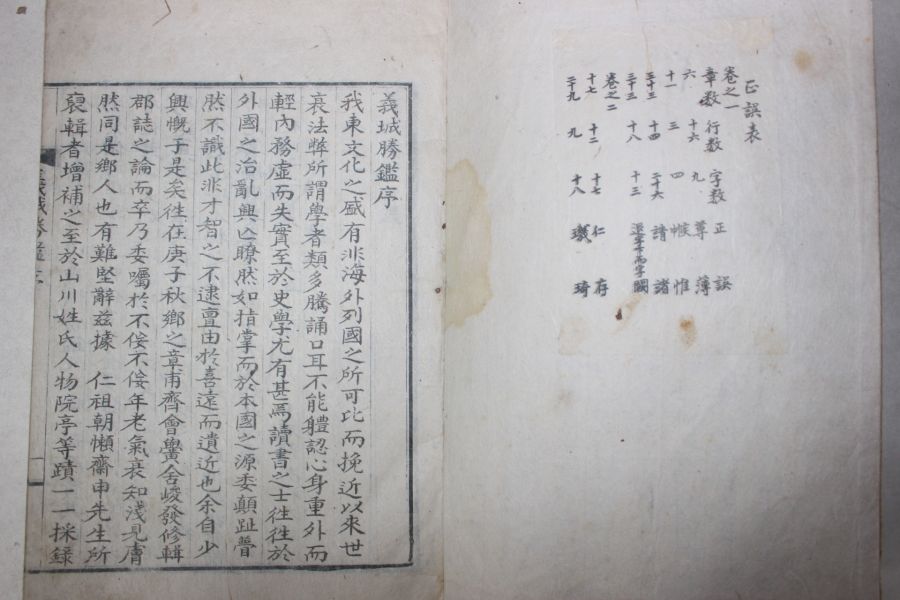 正誤表
卷之一
章数 行数 字数 正 誤
六 十六 九 薄
十一 三 四 帷 惟
二十三 十四 二十六 請 諸
三十三 十八 十三 還字下而字 闕
卷之二
十七 十二 十七 仁 存
二十九 九 十八 琦
義城勝鑑序
我東文化之盛有非海外列國之所可比而挽近以來世
衰法弊所謂學者類多騰誦口耳不能軆認心身重外而
輕內務虛而失實至於史學尤有甚焉讀書之士徃徃於
外國之治亂興亾瞭然如指掌而於本國之源委顚趾瞢
然不識此非才智之不逮亶由於喜遠而遺近也余自少
興慨于是矣徃在庚子秋鄕之章甫齊會黌舍峻發修輯
郡誌之論而卒乃委囑於不佞不佞年老氣衰知淺見膚
然同是鄕人也有難堅辭玆據 仁祖朝懶齋申先生所
裒輯者增補之至於山川姓氏人物院亭等蹟一一採録